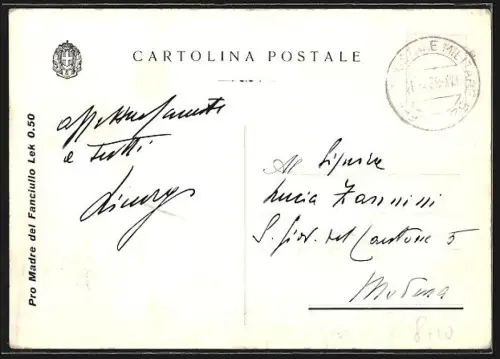 CARTOLINA POSTALE
Pro Madre del Fanciullo Lek 0.50
affettuosamente
a tutti
Alla Signora
Lucia Zannini
S. Giov. del Cantone 5
Modena